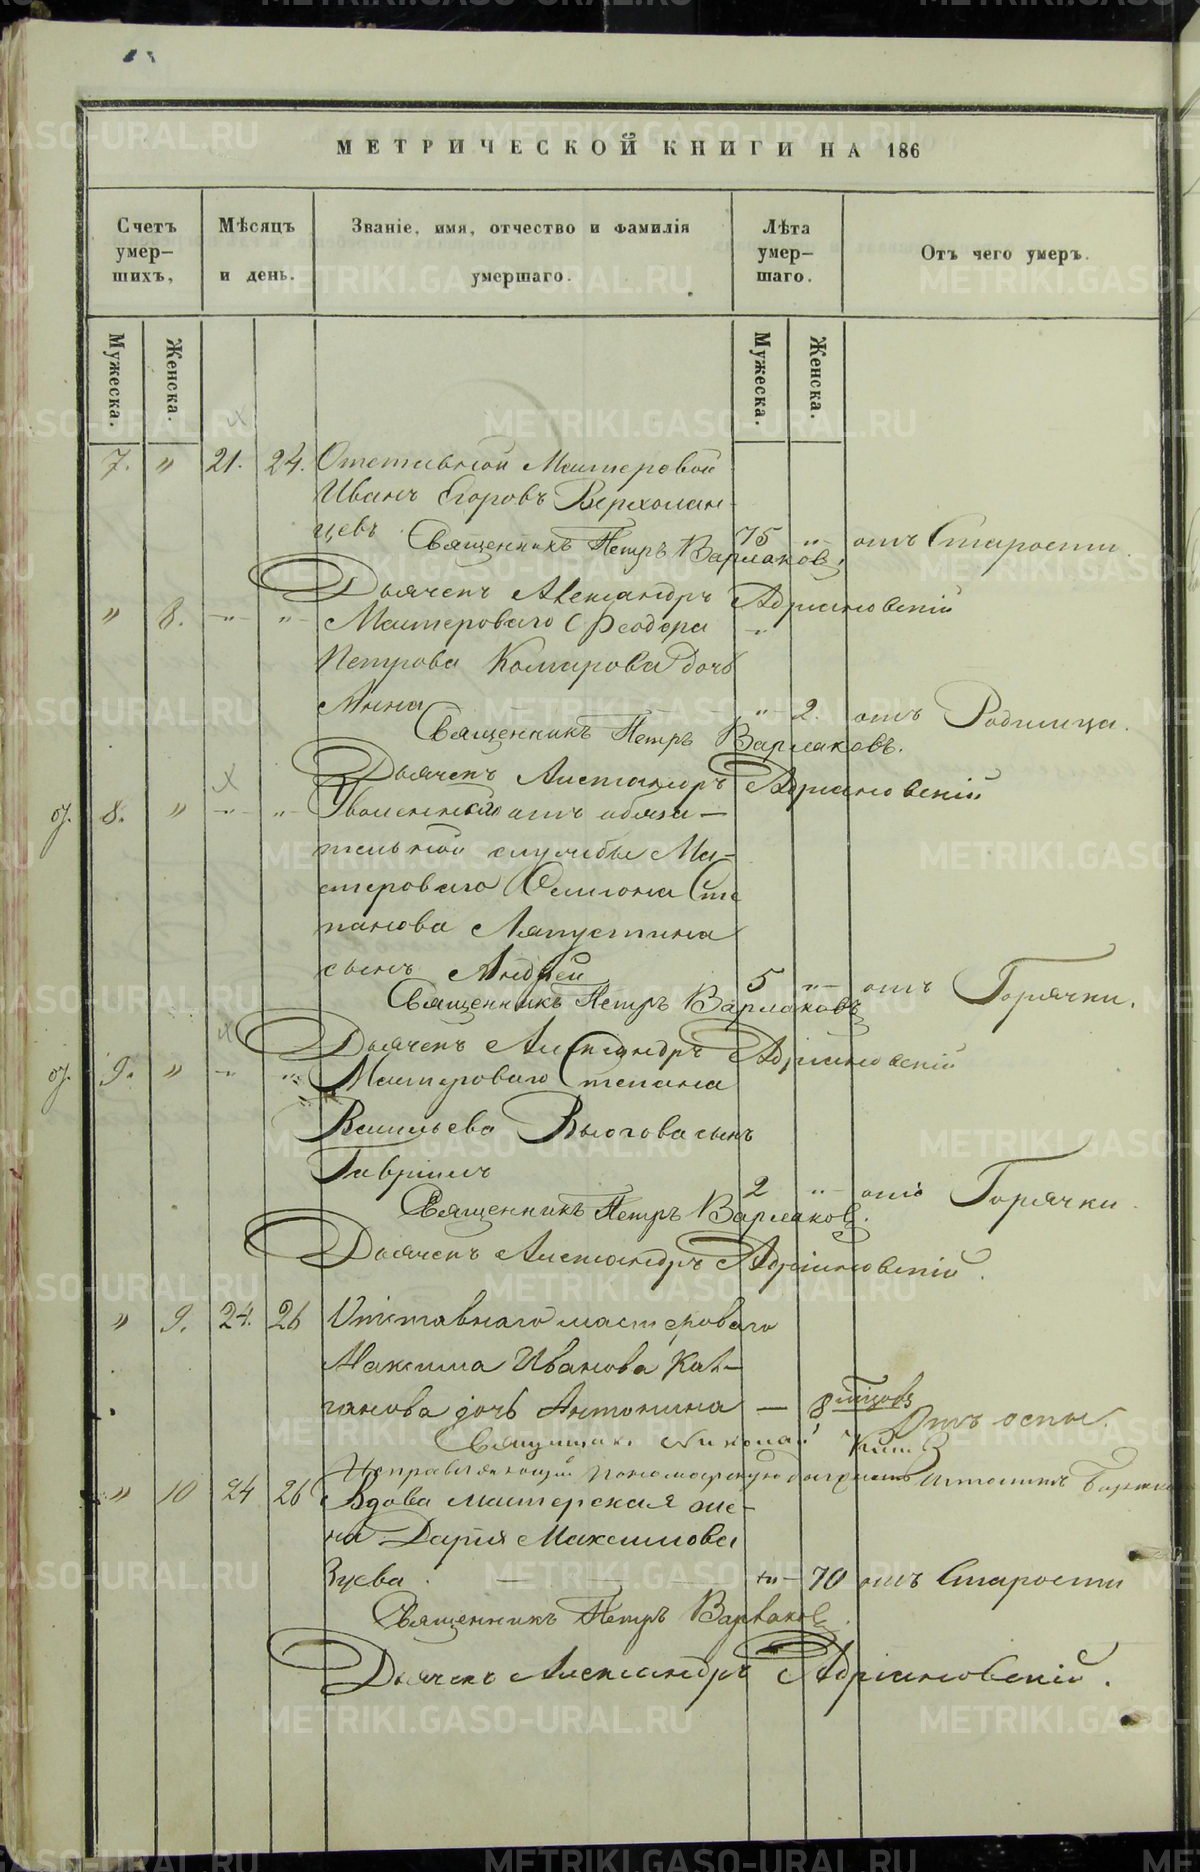 МЕТРИЧЕСКОЙ КНИГИ НА 186
Счетъ умер-шихъ,
Мѣсяцъ и день.
Званіе, имя, отчество и фамилія умершаго.
Лѣта умер-шаго.
Отъ чего умеръ.
Мужеска. Женска. Мужеска. Женска.
7. " 21. 24. Отставной Мастеровой
Иванъ Егоровъ Верхолан-
цевъ 75 " отъ Старости.
Священникъ Петръ Варлаков.
Дьячекъ Александръ Адриановскій
" 8. " " Мастероваго Феодора "
Петрова Комарова дочь
Анна " 2. отъ Родимца.
Священникъ Петръ Варлаковъ.
Дьячекъ Александръ Адриановскій
8. " " " Уволеннаго отъ обяза-
тельной службы Ма-
стероваго Семиона Сте
панова Ляпустина
сынъ Андрей 5 " отъ Горячки.
Священникъ Петръ Варлаковъ
Дьячекъ Александръ Адриановскій
9. " " " Мастероваго Степана
Васильева Вьюгова сынъ
Гавріилъ 2 " отъ Горячки.
Священникъ Петръ Варлаков.
Дьячекъ Александръ Адріановскій.
" 9. 24. 26 Отставнаго мастероваго
Максима Иванова Кал-
ганова дочь Антонина — 8 Отъ оспы.
Священникъ Николай
Исправляющій пономарскую должность
" 10 24 26 Вдова мастерская же-
на Дарія Максимова
Зуева — 70 отъ Старости
Священникъ Петръ Варлаков.
Дьячекъ Александръ Адріановскій.
METRIKI.GASO-URAL.RU